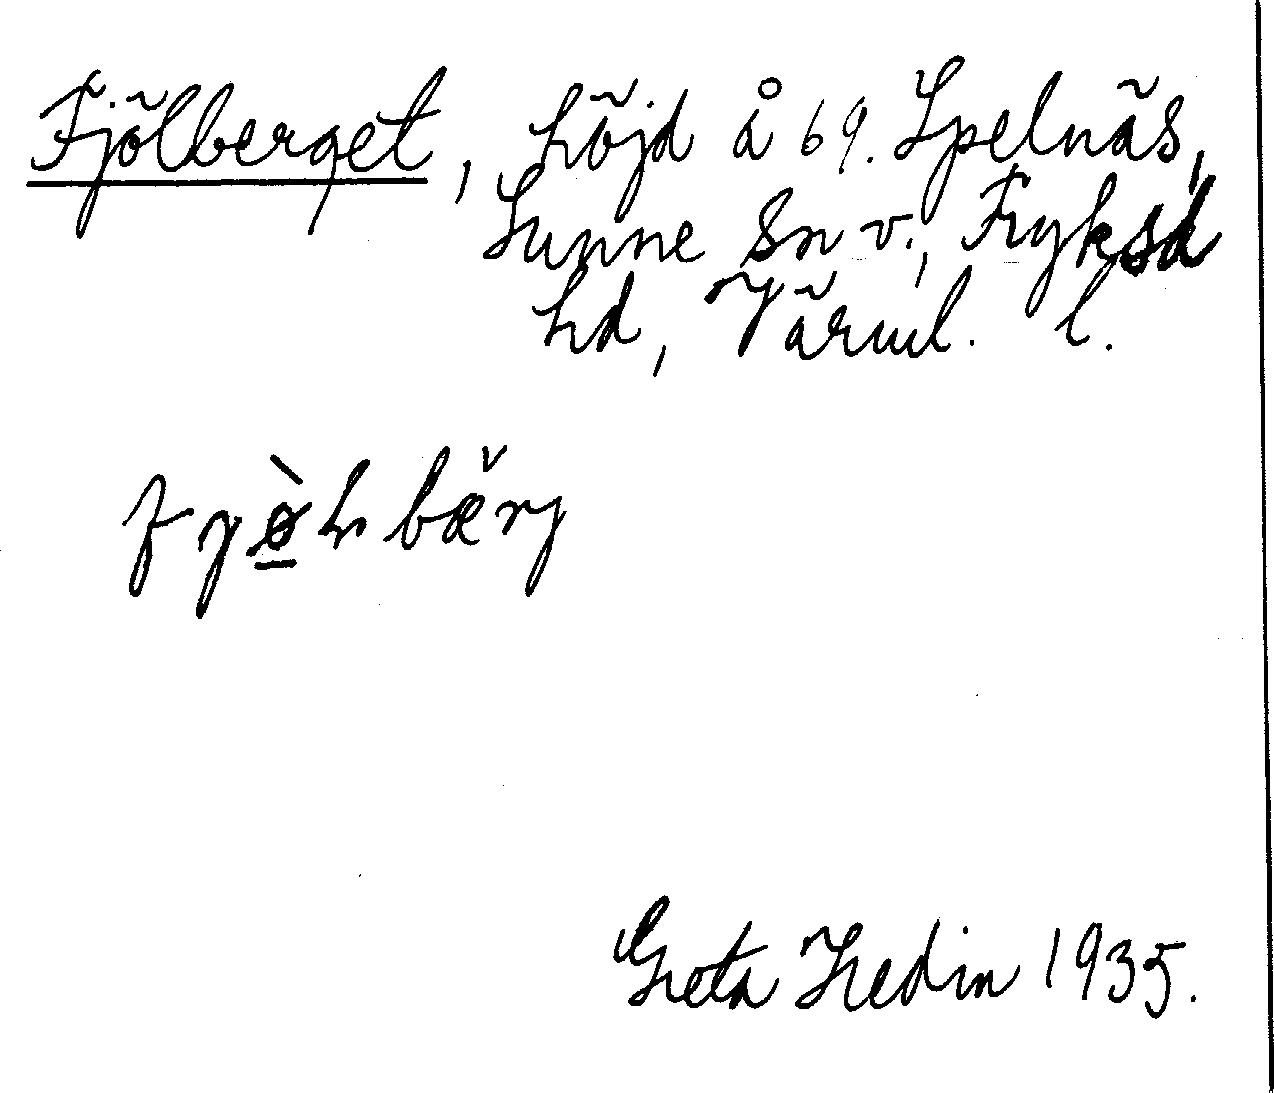 Fjölberget, höjd å 69. Spelnäs,
Sunne Sn v., Fryksd
hd, Värml. l.
fyø̠̀ɽbæ̌rj
Greta Hedin 1935.